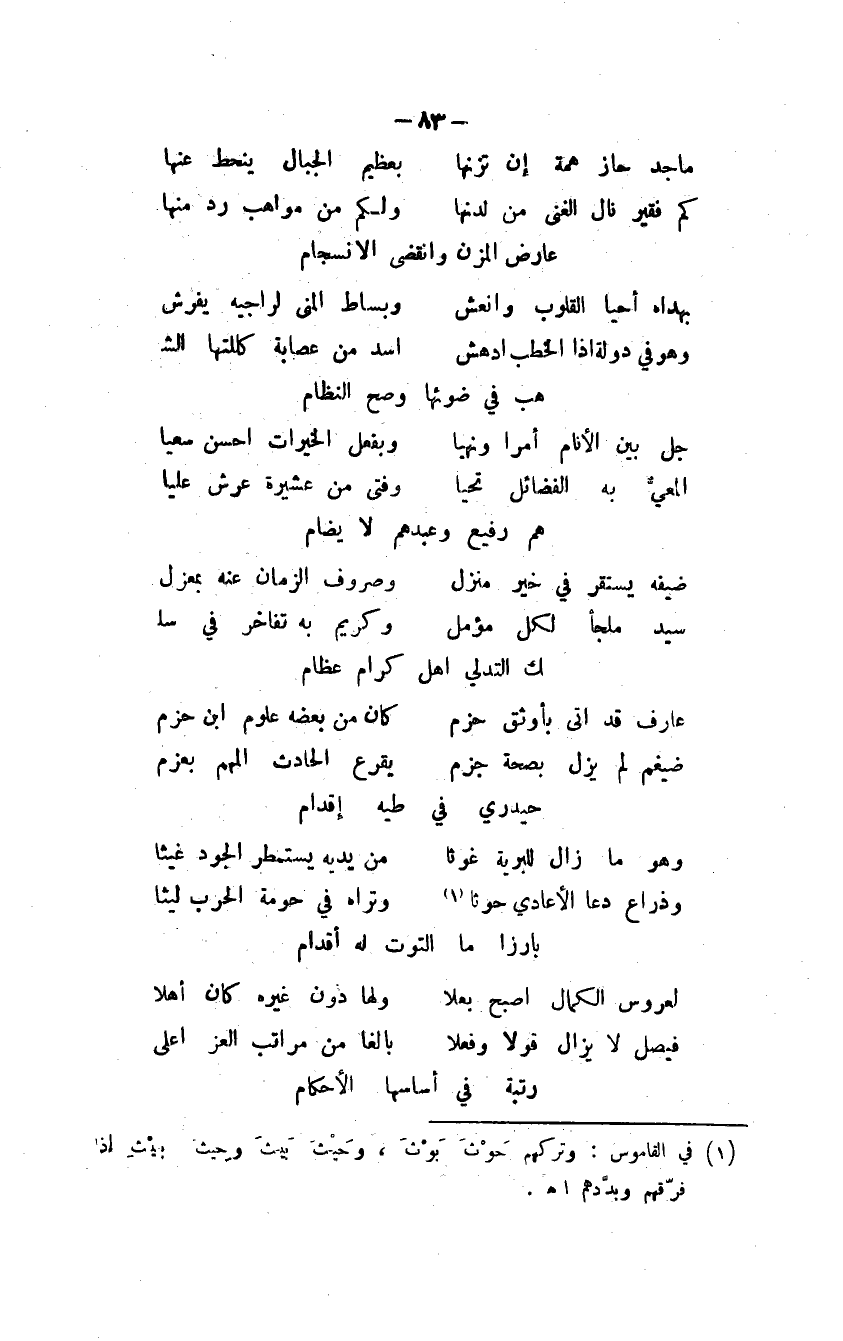 — ٨٣ —
ماجد حاز همة إن تزنها بعظيم الجبال ينحط عنها
كم فقير نال الغنى من لدنها ولكم من مواهب رد منها
عارض المزن وانقضى الانسجام
بهداه أحيا القلوب وانعش وبساط المنى لراجيه يفرش
وهو في دولة اذا الخطب ادهش اسد من عصابة كللتها الش
هب في ضوئها وصح النظام
جل بين الأنام أمرا ونهيا وبفعل الخيرات احسن سعيا
المعيٌّ به الفضائل تحيا وفتى من عشيرة عرش عليا
هم رفيع وعبدهم لا يضام
ضيفه يستقر في خير منزل وصروف الزمان عنه بمعزل
سيد ملجأ لكل مؤمل وكريم به تفاخر في سا
لك التدلي اهل كرام عظام
عارف قد اتى بأوثق حزم كان من بعضه علوم ابن حزم
ضيغم لم يزل بصحة جزم يقرع الحادث المهم بعزم
حيدري في طيه إقدام
وهو ما زال للبرية غوثا من يديه يستمطر الجود غيثا
وذراع دعا الأعادي حوثا (١) وتراه في حومة الحرب ليثا
بارزا ما التوت له أقدام
لعروس الكمال اصبح بعلا ولها دون غيره كان أهلا
فيصل لا يزال قولا وفعلا بالغا من مراتب العز اعلى
رتبة في أساسها الأحكام
(١) في القاموس : وتركهم حَوْثَ بَوْثَ ، وحَيْثَ بَيْثَ وحِيثَ بِيْثَ إذا
فرّقهم وبدَّدهم ا ه .